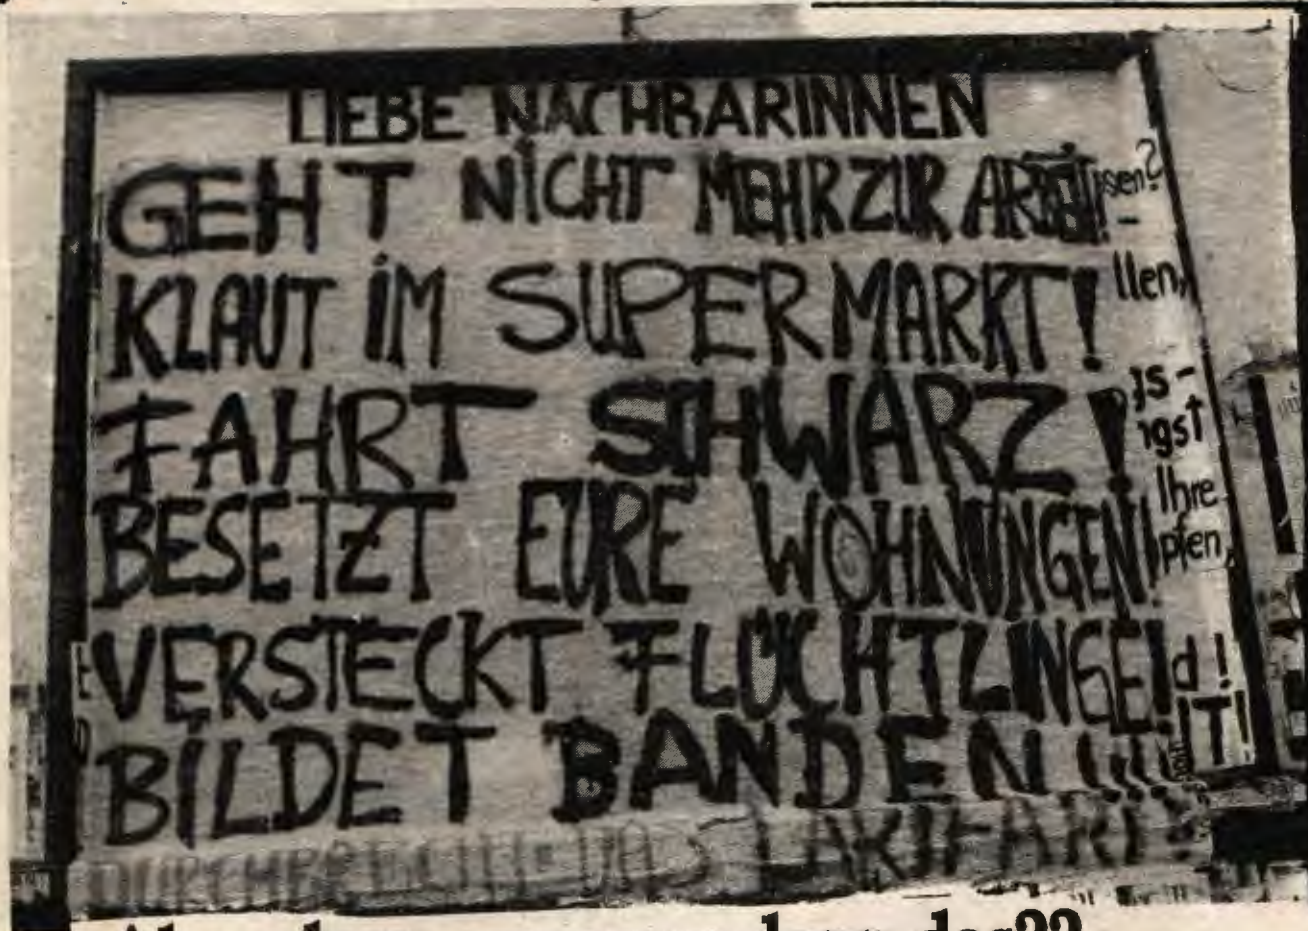 LIEBE NACHBARINNEN
GEHT NICHT MEHR ZUR ARBEIT!
KLAUT IM SUPERMARKT!
FAHRT SCHWARZ!
BESETZT EURE WOHNUNGEN!
VERSTECKT FLÜCHTLINGE!
BILDET BANDEN!!!!
DURCHBRECHT DAS LARIFARI!
sen?
llen,
gs-
ngst
Ihre
pfen,
d!
IT!
das??